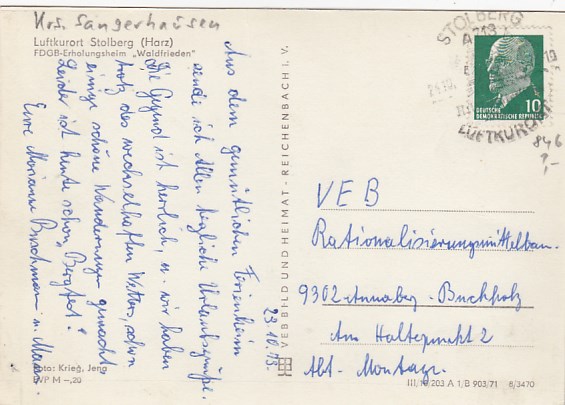 Krs. Sangerhausen
Luftkurort Stolberg (Harz)
FDGB-Erholungsheim „Waldfrieden"
Aus dem gemütlichen Ferienheim
sende ich Allen herzliche Urlaubsgrüße.
Die Gegend ist herrlich, u. wir haben
trotz des wechselhaften Wetters, schon
einige schöne Wanderungen gemacht.
Leider ist heute schon „Bergfest".
Eure Marianne u. Mann.
23.10.73.
Foto: Krieg, Jena
EVP M -,20
VEB BILD UND HEIMAT · REICHENBACH I. V.
STOLBERG
LUFTKURORT
DEUTSCHE
DEMOKRATISCHE REPUBLIK
10
846
?,-
VEB
Rationalisierungsmittelbau.
9302 Annaberg-Buchholz
Am Haltepunkt 2
Abt. Montage.
A 1/B 903/71
8/3470